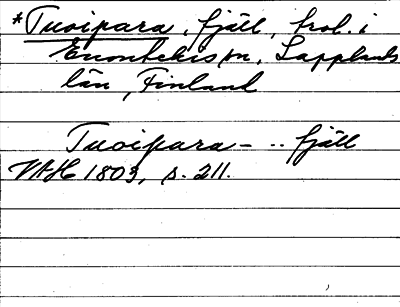 *Tuoipara, fjäll, trol. i
Enontekis sn, Lapplands
län, Finland
Tuoipara- .. fjäll
VAH 1803, s. 211.